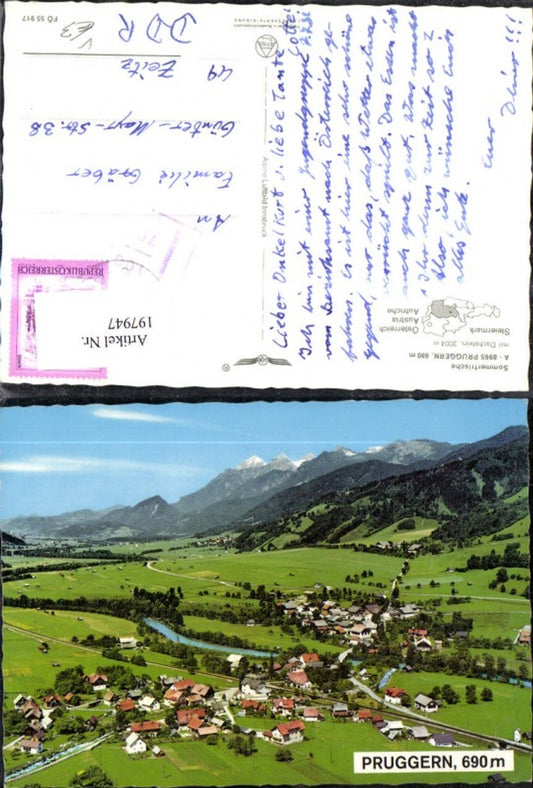 Sommerfrische
A - 8965 PRUGGERN, 690 m
mit Dachstein, 2004 m
Steiermark
Österreich
Austria
Autriche
Lieber Onkel Kurt u. liebe Tante
Ich bin mit einer Jugendgruppe
nach Österreich ge-
fahren. Es ist hier eine sehr schöne
Gegend, nur das, daß Wetter etwas
verrückt spielt. Das Essen ist
auch ganz gut. Was macht
Ihr denn zur Zeit so?
Also, ich wünsche Euch
alles Gute.
Euer
Alpine Luftbild Innsbruck
An
Familie Gräber
Günter-Mayr-Str. 38
49 Zeitz
DDR
FÖ 55 917
REPUBLIK ÖSTERREICH
Artikel Nr.
197947
PRUGGERN, 690 m